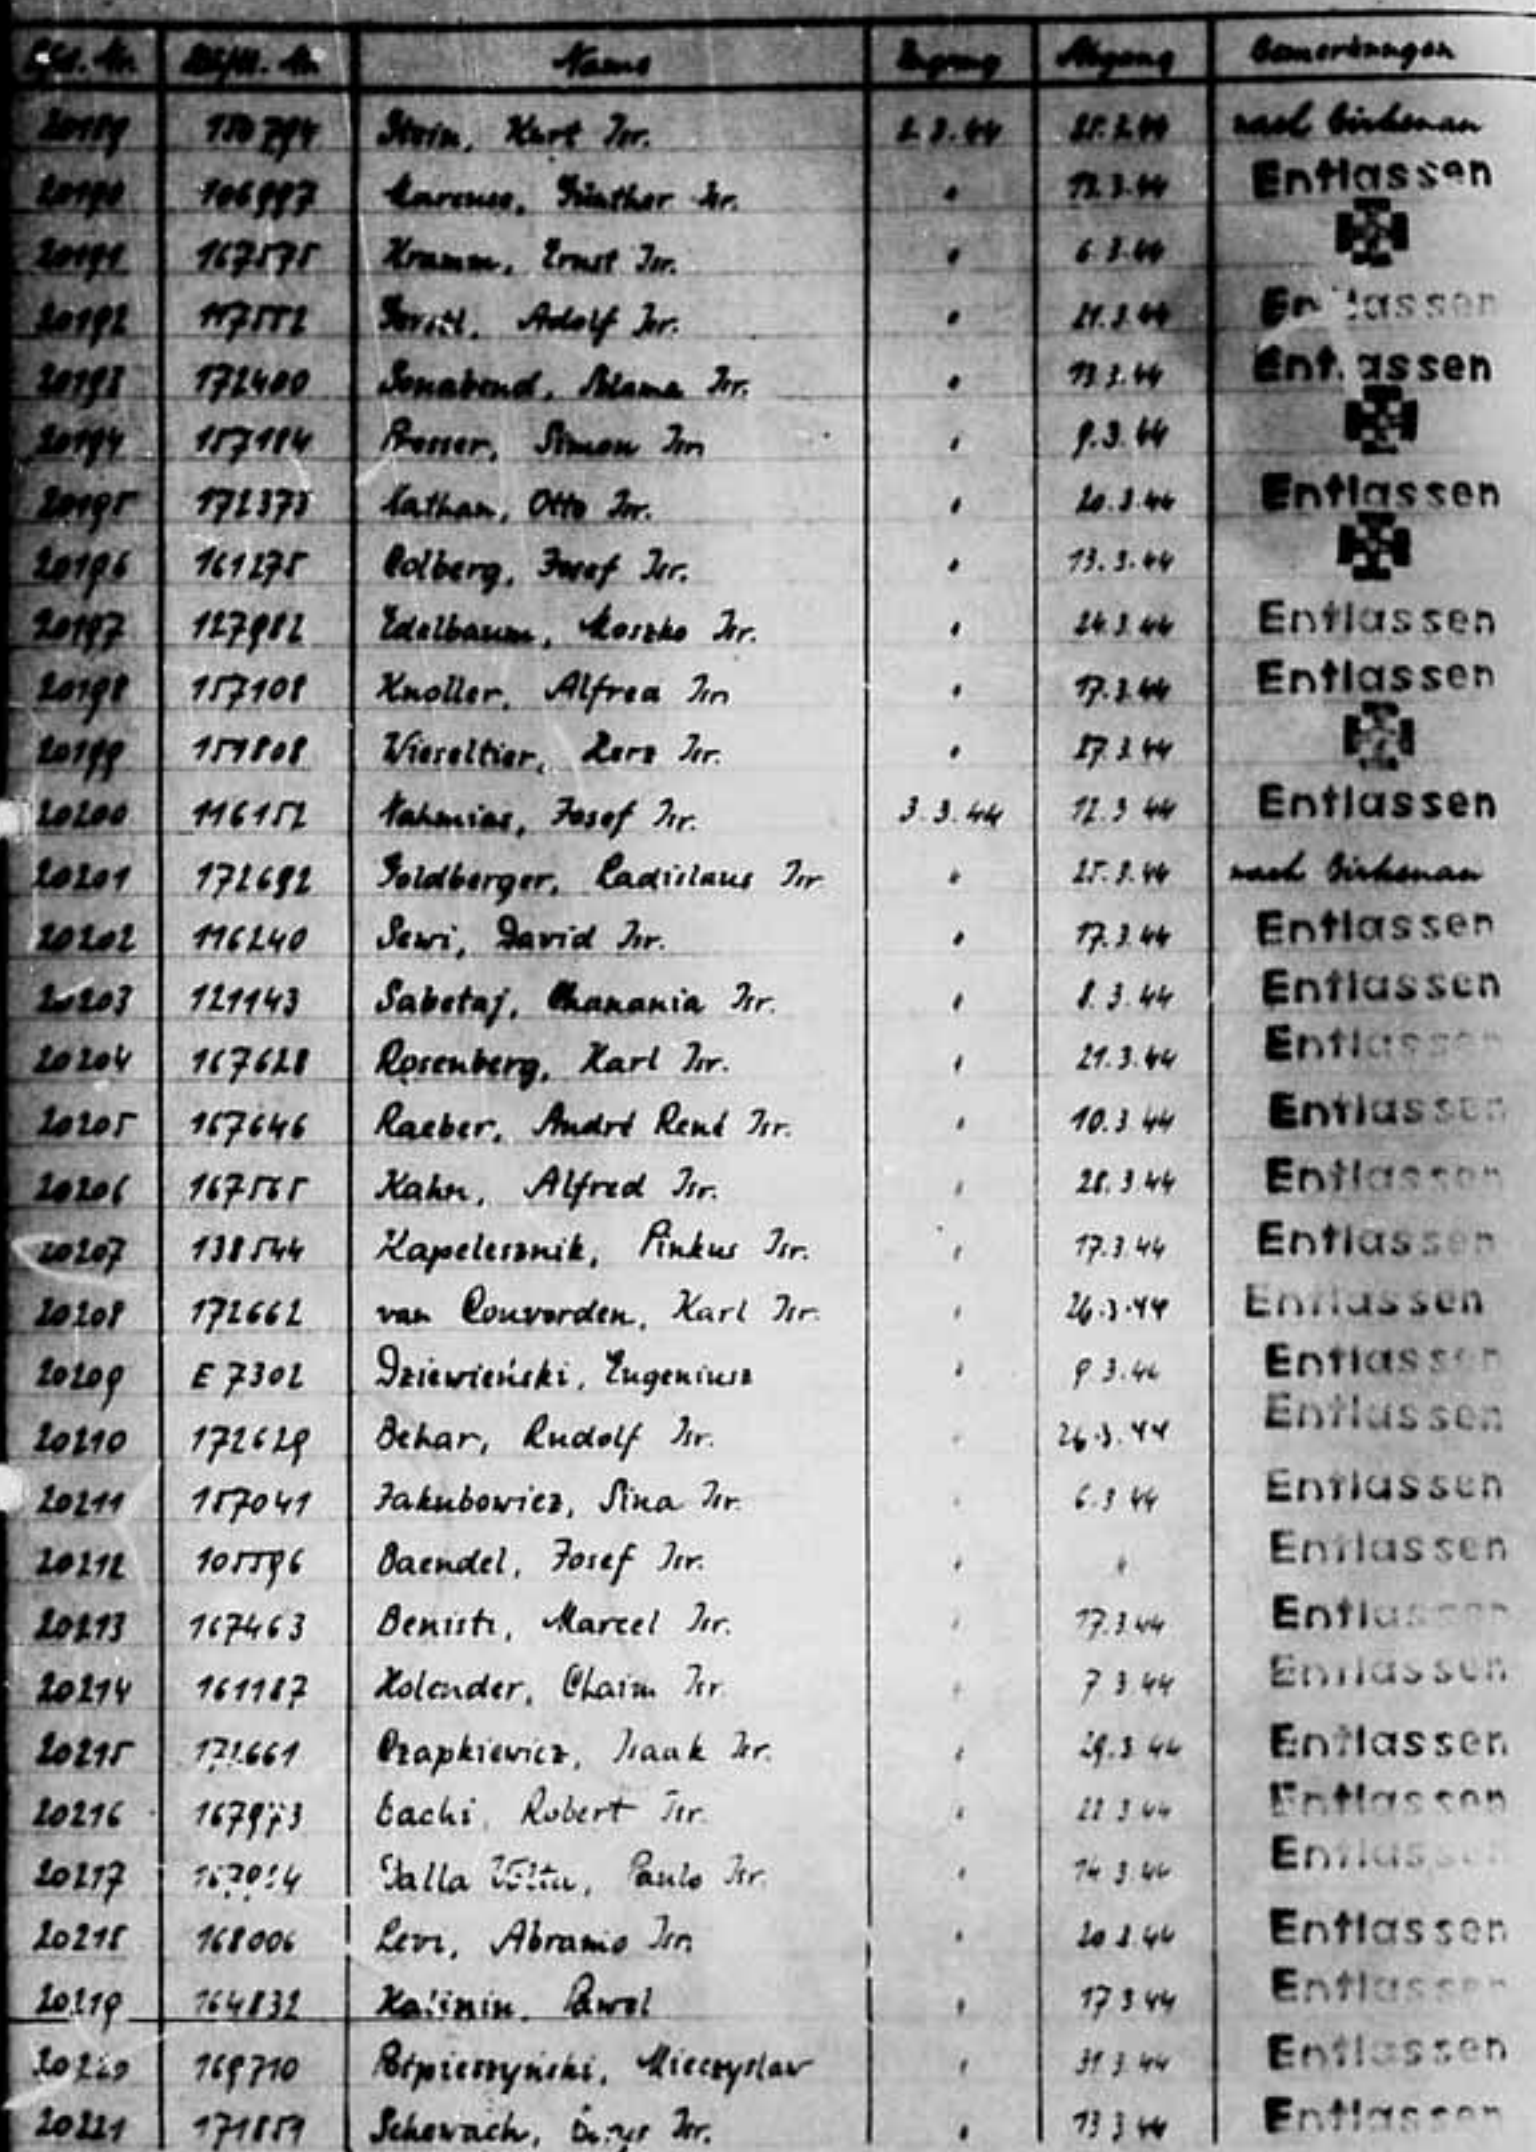 Lfd. Nr. Häftl. Nr. Name Zugang Abgang Bemerkungen
20189 150794 Stein, Kurt Isr. 2.3.44 25.3.44 nach Birkenau
20190 106997 Marcuse, Günther Isr. " 13.3.44 Entlassen
20191 167575 Kramm, Ernst Isr. " 6.3.44
20192 Adolf Isr. " 21.3.44 Entlassen
20193 172400 Sonabend, Isr. " 13.3.44 Entlassen
20194 157184 Simon Isr. " 9.3.44
20195 172373 Nathan, Otto Isr. " 20.3.44 Entlassen
20196 161275 Colberg, Josef Isr. " 13.3.44
20197 127982 Edelbaum, Moszko Isr. " 24.3.44 Entlassen
20198 157108 Knoller, Alfred Isr. " 17.3.44 Entlassen
20199 151808 Wieseltier, Herz Isr. " 27.3.44
20200 116152 Nahmias, Josef Isr. 3.3.44 12.3.44 Entlassen
20201 172692 Goldberger, Ladislaus Isr " 25.3.44 nach Birkenau
20202 116240 Sewi, David Isr. " 17.3.44 Entlassen
20203 121143 Sabetaj, Chanania Isr. " 8.3.44 Entlassen
20204 167628 Rosenberg, Karl Isr. " 21.3.44 Entlassen
20205 167646 Raeber, André René Isr. " 10.3.44 Entlassen
20206 167565 Kahn, Alfred Isr. " 28.3.44 Entlassen
20207 138544 Kapelesznik, Pinkus Isr. " 17.3.44 Entlassen
20208 172662 van Couvorden, Karl Isr. " 26.3.44 Entlassen
20209 E 7302 Dziewieński, Eugeniusz " 9.3.44 Entlassen
20210 172629 Behar, Rudolf Isr. " 26.3.44 Entlassen
20211 157041 Jakubowicz, Sina Isr. " 6.3.44 Entlassen
20212 105596 Baendel, Josef Isr. " " Entlassen
20213 167463 Benisti, Marcel Isr. " 17.3.44 Entlassen
20214 161187 Holender, Chaim Isr. " 7.3.44 Entlassen
20215 172661 Czapkiewicz, Isaak Isr. " 29.3.44 Entlassen
20216 167973 Bachi, Robert Isr. " 22.3.44 Entlassen
20217 Dalla Volta, Paulo Isr. " 14.3.44 Entlassen
20218 168006 Levi, Abramo Isr. " 20.3.44 Entlassen
20219 164832 Kalinin, Pawel " 17.3.44 Entlassen
20220 169710 Pośpieszyński, Mieczyslaw " 31.3.44 Entlassen
20221 171859 Schewach, Isr. " 13.3.44 Entlassen